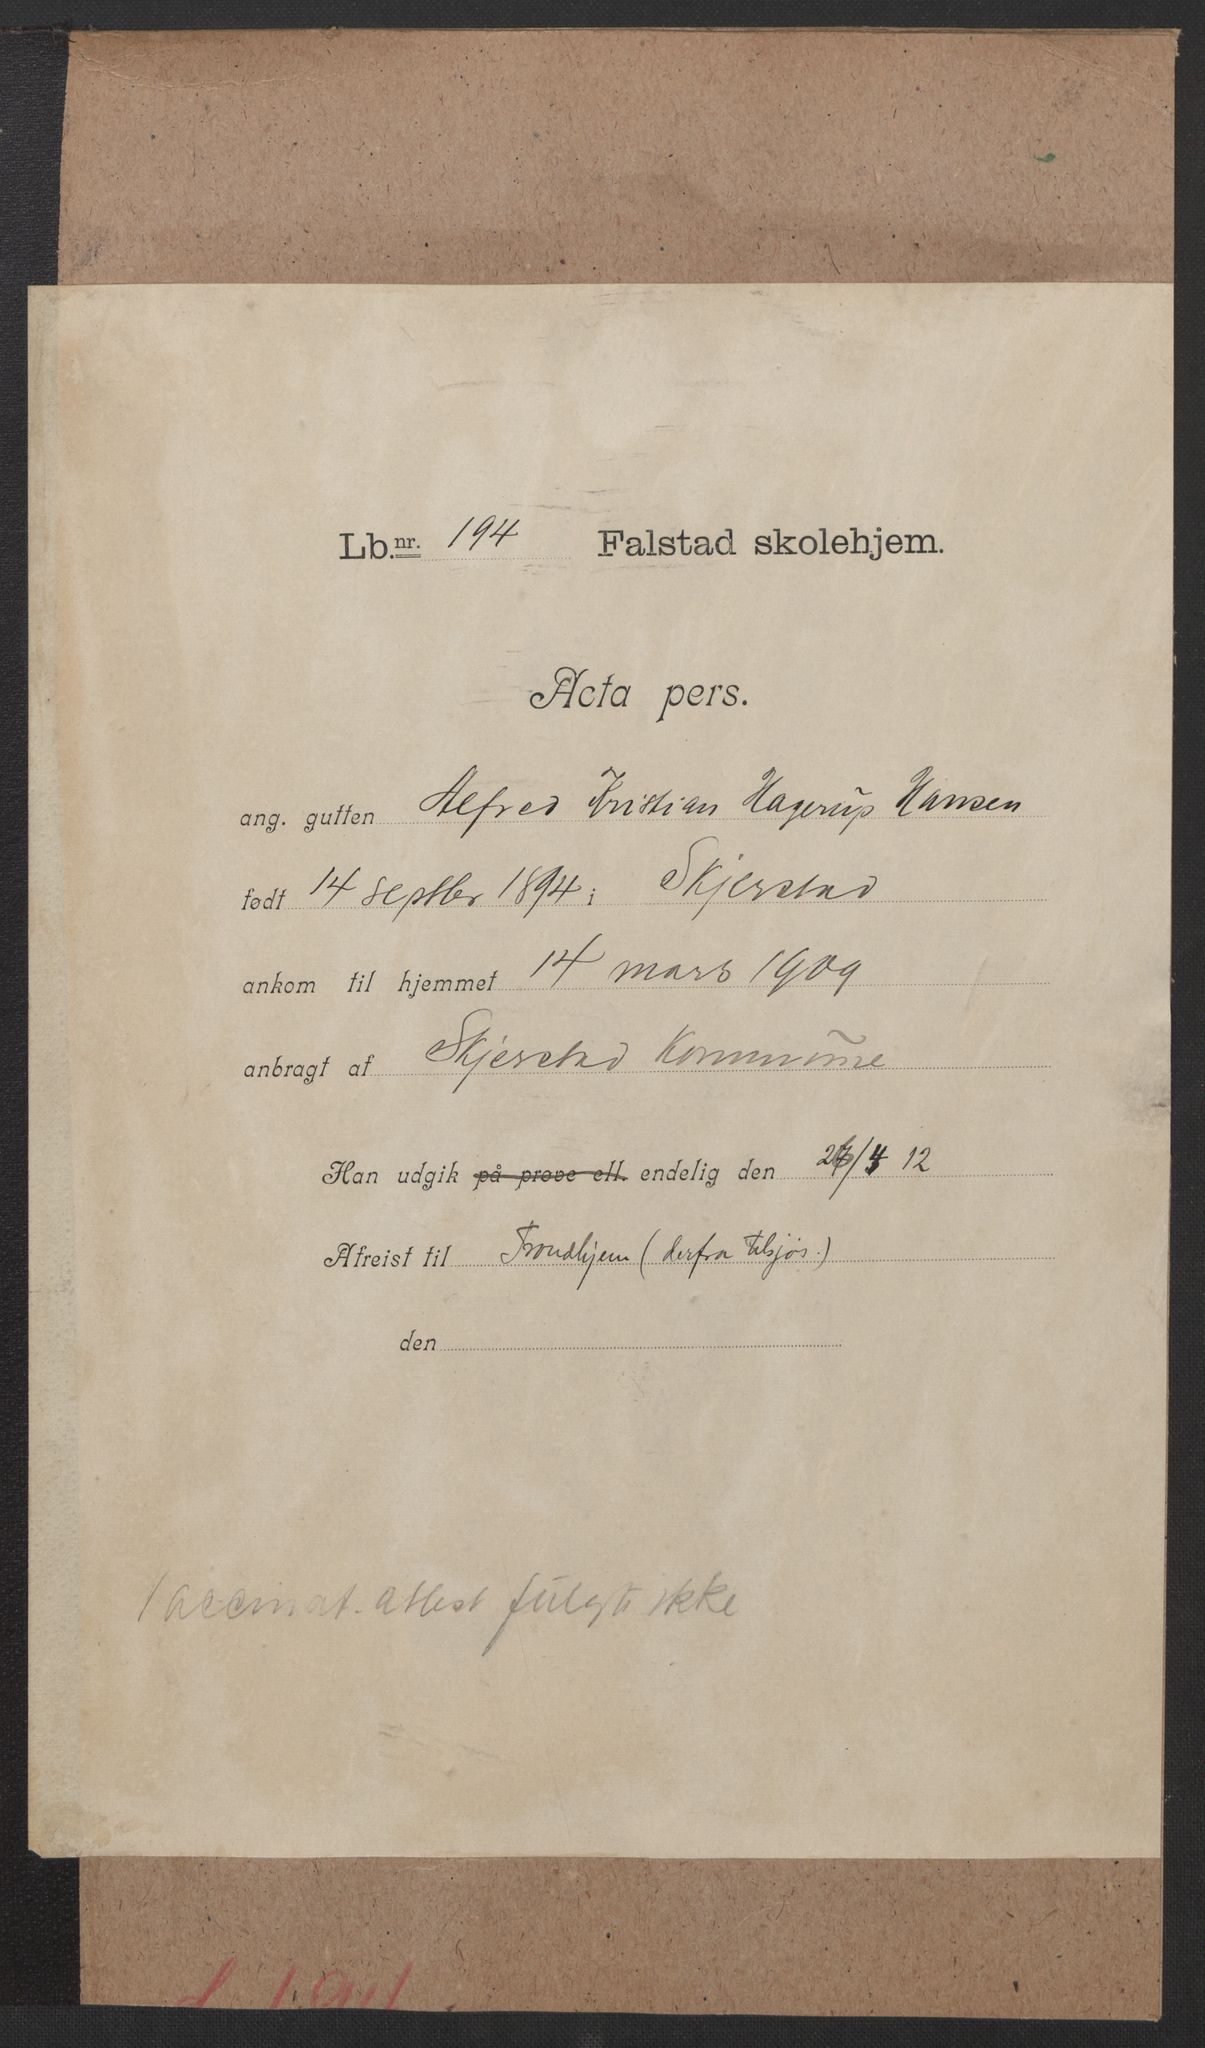 Lb.nr. 194 Falstad skolehjem.
Acta pers.
ang. gutten Alfred Kristian Hagerup Hansen
født 14 septbr 1894 i Skjerstad
ankom til hjemmet 14 mars 1909
anbragt af Skjerstad Kommune
Han udgik på prøve ell. endelig den 26/4 12
Afreist til Trondhjem (derfra tilsjøs.)
den
Vaccinat. attest fulgte ikke